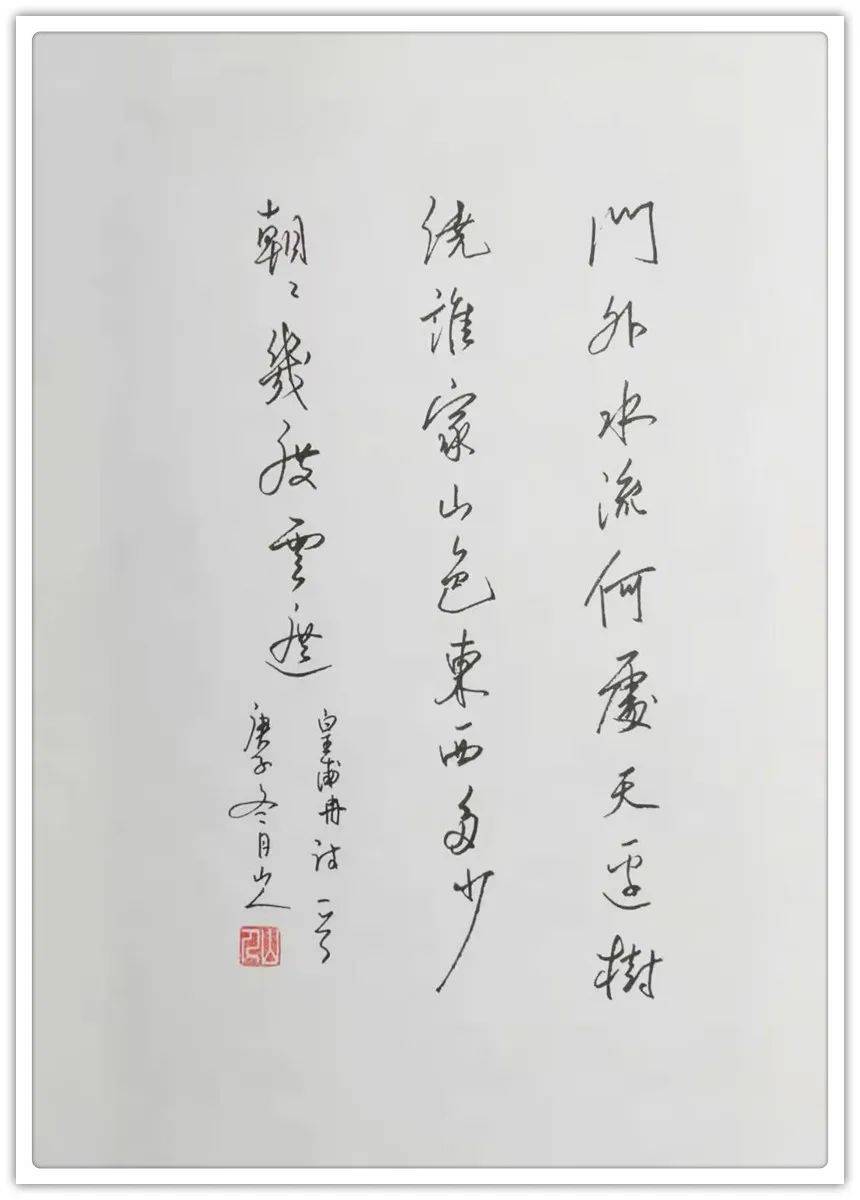 門外水流何處天邊樹
繞誰家山色東西多少
朝〻幾度雲遮
皇甫冉詩一首
庚子冬月山人
山人